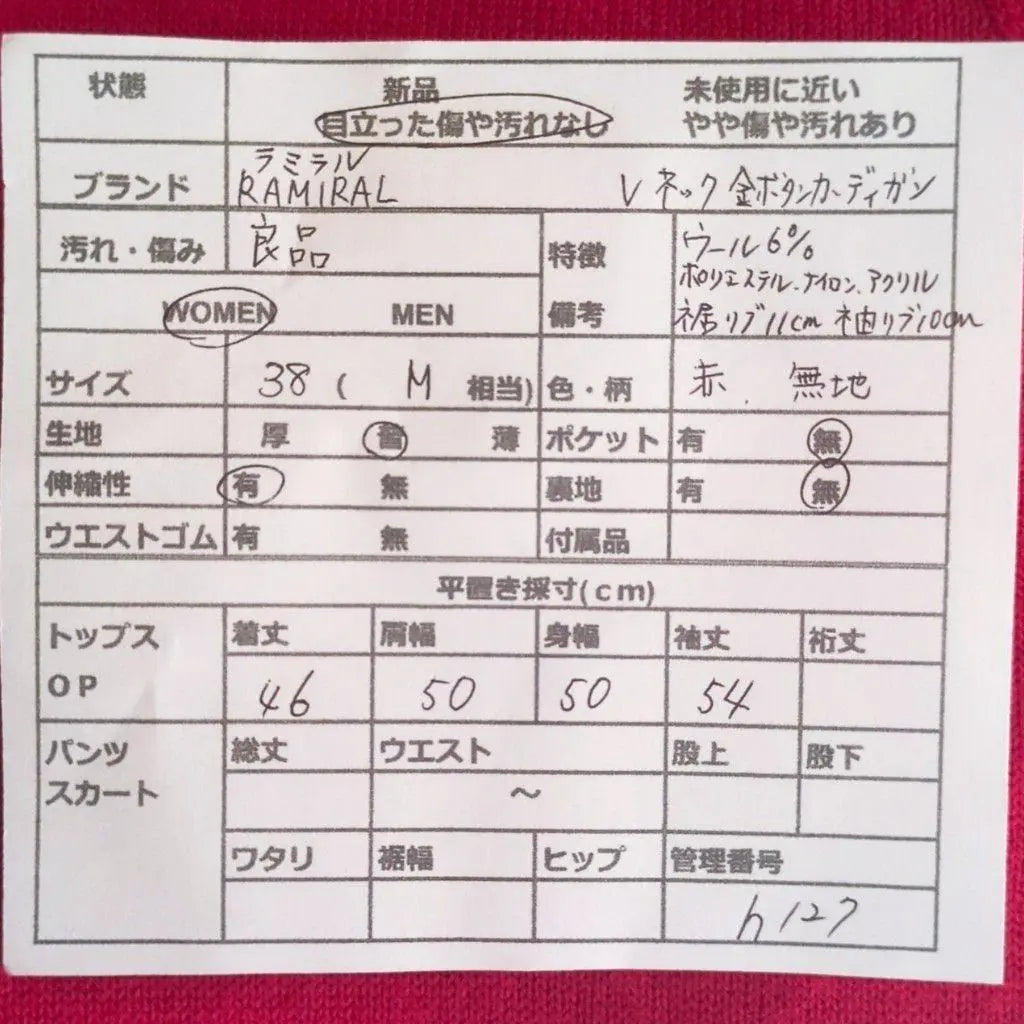 状態 新品 未使用に近い
目立った傷や汚れなし やや傷や汚れあり
ラミラル
ブランド RAMIRAL Vネック金ボタンカーディガン
汚れ・傷み 良品
特徴 ウール6%
ポリエステル、ナイロン、アクリル
WOMEN MEN
備考 裾リブ11cm 袖リブ10cm
サイズ 38( M 相当) 色・柄 赤 無地
生地 厚 普 薄 ポケット 有 無
伸縮性 有 無 裏地 有 無
ウエストゴム 有 無 付属品
平置き採寸(cm)
トップス 着丈 肩幅 身幅 袖丈 裄丈
OP 46 50 50 54
パンツ 総丈 ウエスト 股上 股下
スカート ~
ワタリ 裾幅 ヒップ 管理番号
h127